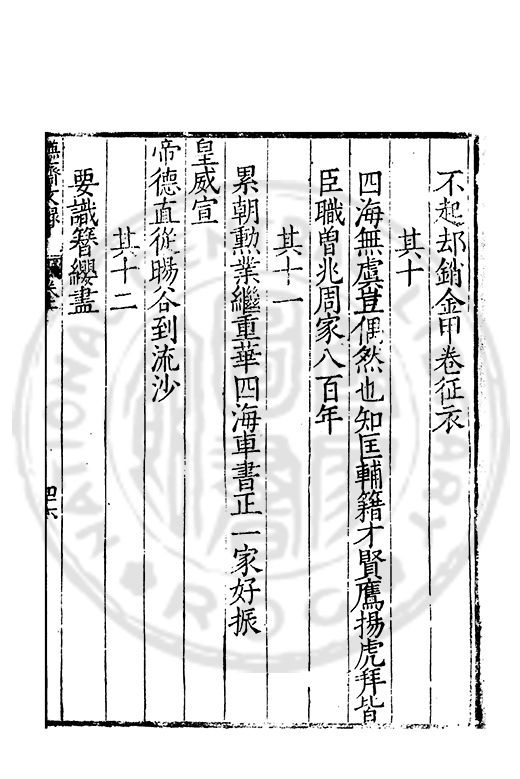 不起却銷金甲卷征衣
其十
四海無虞豈偶然也知匡輔籍才賢鷹揚虎拜皆
臣職曽兆周家八百年
其十一
累朝勲業繼重華四海車書正一家好振
皇威宣
帝德直從暘谷到流沙
其十二
要識簪纓盡
四六